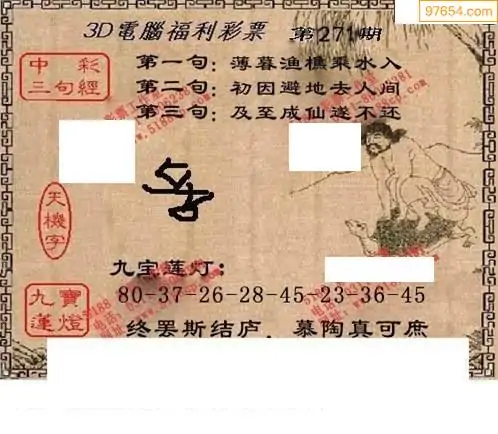 97654.com
3D電腦福利彩票 第271期
中彩三句經
第一句：薄暮渔樵乘水入
第二句：初因避地去人间
第三句：及至成仙遂不还
天機字
九宝莲灯：
九寶蓮燈
80-37-26-28-45-23-36-45
终罢斯结庐，慕陶真可庶